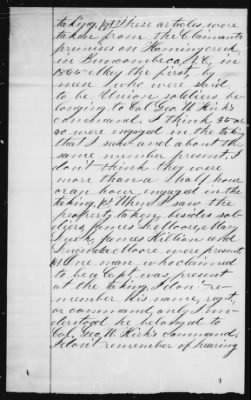 taking. These articles were
taken from the Claimant's
premises on Hominy creek
in Buncombe co, N.C, in
1865 - May the first, by
men who were said
to be Union soldiers, be-
longing to Col. Geo. W. Kirk's
command. I think 30 or
so were engaged in the taking
that I saw and about the
same number present, I
don't think they were
more than a half hour
or an hour engaged in the
taking. When I saw the
property taken, besides sol-
diers, James L. Moore, Mary
James Hilton and
Moore were present,
One man, who claimed
to be a Capt. was, present
at the taking, I don't re-
member his name, regt,
or command, only I un-
derstood he belonged to
Col, Geo, W. Kirk's command.
I don't remember of hearing